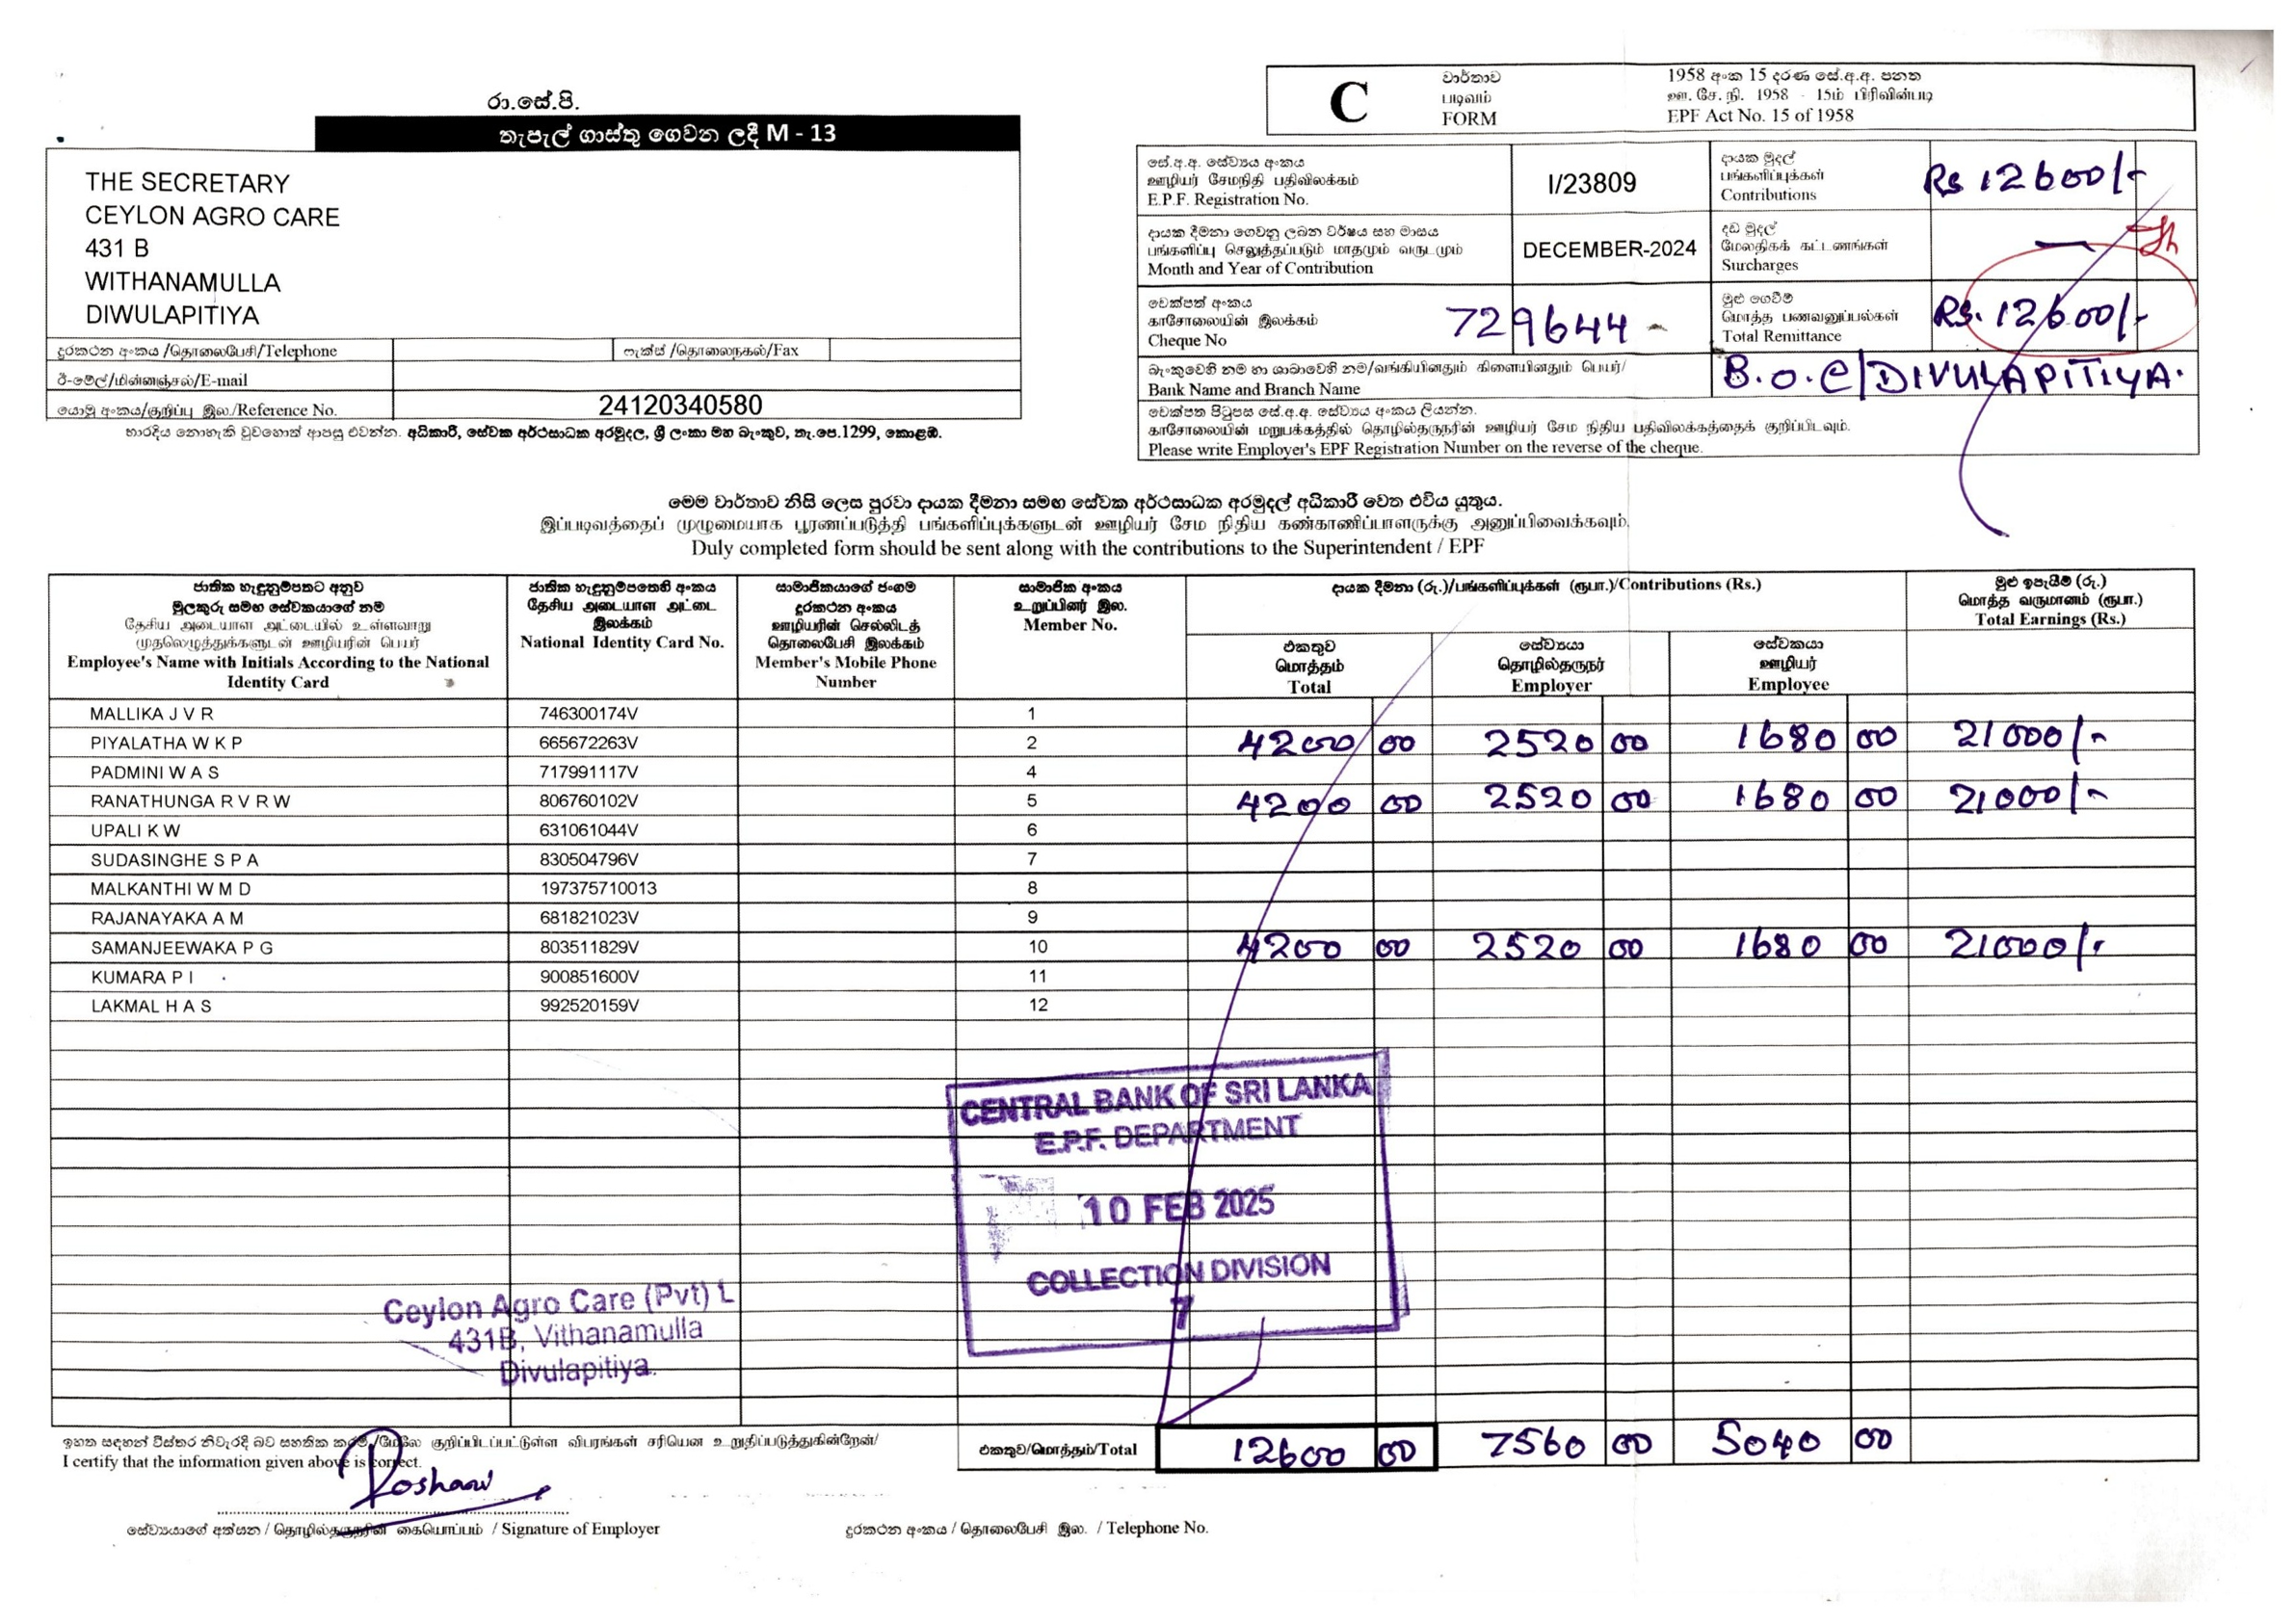 රා.සේ.පි.
තැපැල් ගාස්තු ගෙවන ලදී M - 13
THE SECRETARY
CEYLON AGRO CARE
431 B
WITHANAMULLA
DIWULAPITIYA
දුරකථන අංකය /தொலைபேசி/Telephone
ෆැක්ස් /தொலைநகல்/Fax
ඊ-මේල්/மின்னஞ்சல்/E-mail
යොමු අංකය/குறிப்பு இல./Reference No. 24120340580
භාරදිය නොහැකි වුවහොත් ආපසු එවන්න. අධිකාරී, සේවක අර්ථසාධක අරමුදල, ශ්‍රී ලංකා මහ බැංකුව, තැ.පෙ.1299, කොළඹ.
C
වාර්තාව
படிவம்
FORM
1958 අංක 15 දරණ සේ.අ.අ. පනත
ஊ. சே. நி. 1958 - 15ம் பிரிவின்படி
EPF Act No. 15 of 1958
සේ.අ.අ. සේව්‍යය අංකය
ஊழியர் சேமநிதி பதிவிலக்கம்
E.P.F. Registration No.
I/23809
දායක මුදල්
பங்களிப்புக்கள்
Contributions
Rs 12600/-
දායක දීමනා ගෙවනු ලබන වර්ෂය සහ මාසය
பங்களிப்பு செலுத்தப்படும் மாதமும் வருடமும்
Month and Year of Contribution
DECEMBER-2024
දඩ මුදල්
மேலதிகக் கட்டணங்கள்
Surcharges
—
චෙක්පත් අංකය
காசோலையின் இலக்கம்
Cheque No
729644 -
මුළු ගෙවීම්
மொத்த பணவனுப்பல்கள்
Total Remittance
Rs. 12600/-
බැංකුවෙහි නම හා ශාඛාවෙහි නම/வங்கியினதும் கிளையினதும் பெயர்/
Bank Name and Branch Name
B.O.C/DIVULAPITIYA.
චෙක්පත පිටුපස සේ.අ.අ. සේව්‍යය අංකය ලියන්න.
காசோலையின் மறுபக்கத்தில் தொழில்தருநரின் ஊழியர் சேம நிதிய பதிவிலக்கத்தைக் குறிப்பிடவும்.
Please write Employer's EPF Registration Number on the reverse of the cheque.
මෙම වාර්තාව නිසි ලෙස පුරවා දායක දීමනා සමඟ සේවක අර්ථසාධක අරමුදල් අධිකාරී වෙත එවිය යුතුය.
இப்படிவத்தைப் முழுமையாக பூரணப்படுத்தி பங்களிப்புக்களுடன் ஊழியர் சேம நிதிய கண்காணிப்பாளருக்கு அனுப்பிவைக்கவும்.
Duly completed form should be sent along with the contributions to the Superintendent / EPF
ජාතික හැඳුනුම්පතට අනුව
මුලකුරු සමඟ සේවකයාගේ නම
தேசிய அடையாள அட்டையில் உள்ளவாறு
முதலெழுத்துக்களுடன் ஊழியரின் பெயர்
Employee's Name with Initials According to the National
Identity Card
ජාතික හැඳුනුම්පතෙහි අංකය
தேசிய அடையாள அட்டை
இலக்கம்
National Identity Card No.
සාමාජිකයාගේ ජංගම
දුරකථන අංකය
ஊழியரின் செல்லிடத்
தொலைபேசி இலக்கம்
Member's Mobile Phone
Number
සාමාජික අංකය
உறுப்பினர் இல.
Member No.
දායක දීමනා (රු.)/பங்களிப்புக்கள் (ரூபா.)/Contributions (Rs.)
එකතුව
மொத்தம்
Total
සේව්‍යයා
தொழில்தருநர்
Employer
සේවකයා
ஊழியர்
Employee
මුළු ඉපැයීම් (රු.)
மொத்த வருமானம் (ரூபா.)
Total Earnings (Rs.)
MALLIKA J V R 746300174V 1
PIYALATHA W K P 665672263V 2 4200 00 2520 00 1680 00 21000/-
PADMINI W A S 717991117V 4
RANATHUNGA R V R W 806760102V 5 4200 00 2520 00 1680 00 21000/-
UPALI K W 631061044V 6
SUDASINGHE S P A 830504796V 7
MALKANTHI W M D 197375710013 8
RAJANAYAKA A M 681821023V 9
SAMANJEEWAKA P G 803511829V 10 4200 00 2520 00 1680 00 21000/-
KUMARA P I 900851600V 11
LAKMAL H A S 992520159V 12
CENTRAL BANK OF SRI LANKA
E.P.F. DEPARTMENT
10 FEB 2025
COLLECTION DIVISION
7
Ceylon Agro Care (Pvt) L
431B, Vithanamulla
Divulapitiya.
ඉහත සඳහන් විස්තර නිවැරදි බව සහතික කරමි./மேலே குறிப்பிடப்பட்டுள்ள விபரங்கள் சரியென உறுதிப்படுத்துகின்றேன்/
I certify that the information given above is correct.
එකතුව/மொத்தம்/Total 12600 00 7560 00 5040 00
Roshani
සේව්‍යයාගේ අත්සන / தொழில்தருநரின் கையொப்பம் / Signature of Employer
දුරකථන අංකය / தொலைபேசி இல. / Telephone No.